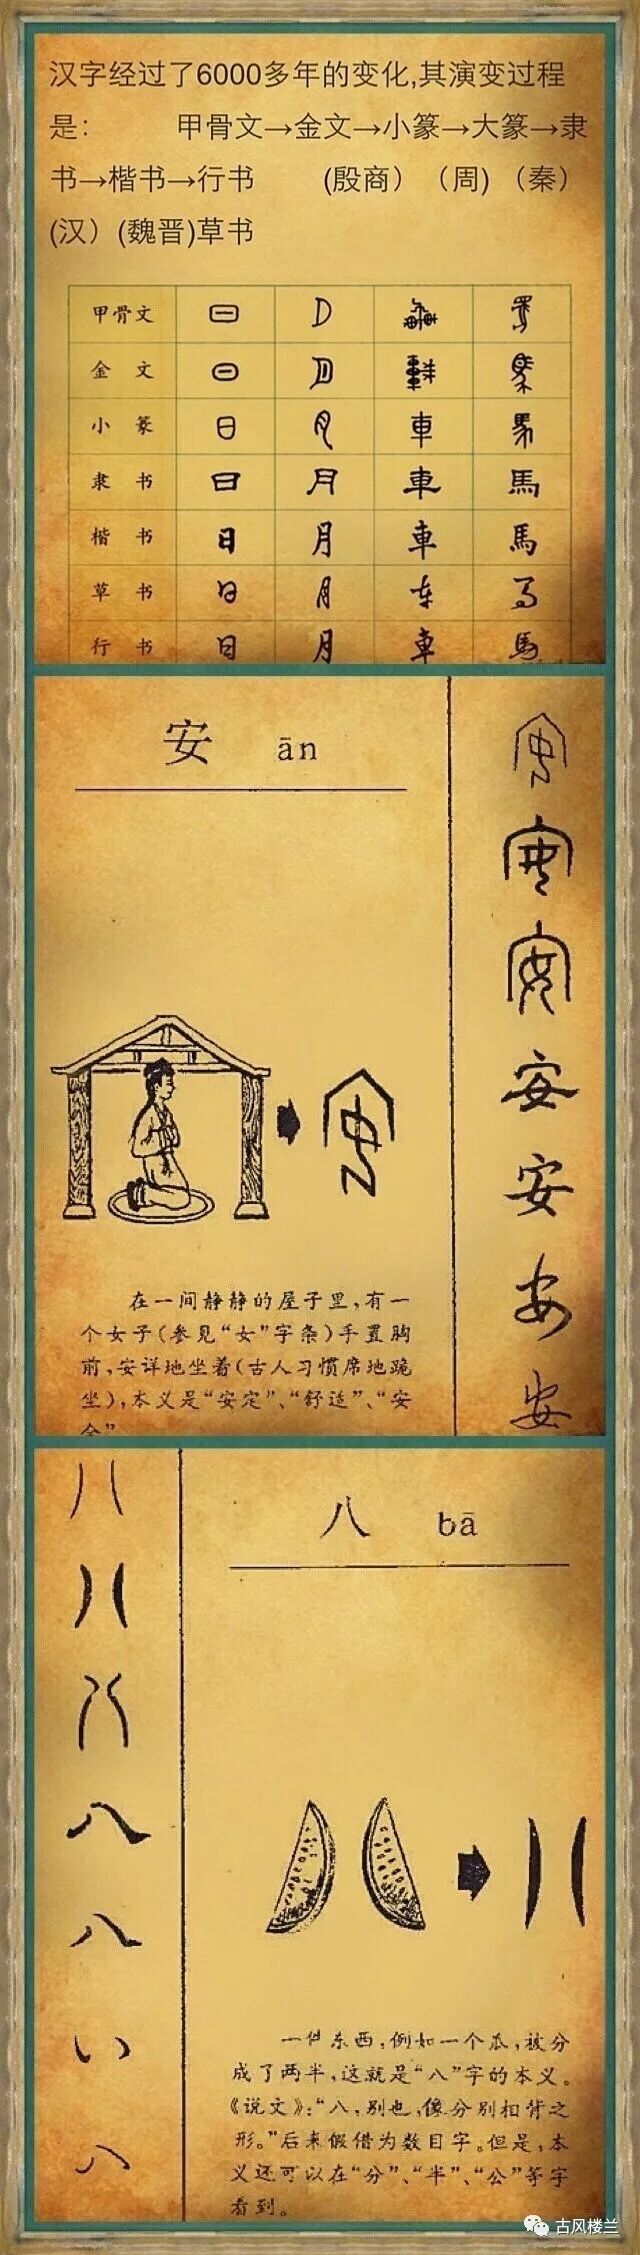 汉字经过了6000多年的变化,其演变过程
是： 甲骨文→金文→小篆→大篆→隶
书→楷书→行书 (殷商）（周）（秦）
(汉）(魏晋)草书
甲骨文 日 月 車 馬
金 文 日 月 車 馬
小 篆 日 月 車 馬
隶 书 日 月 車 馬
楷 书 日 月 車 馬
草 书 日 月 车 马
行 书 日 月 車 馬
安 ān
安
安
安
安
安
安
安
安
在一间静静的屋子里,有一
个女子(参见“女”字条)手置胸
前,安详地坐着(古人习惯席地跪
坐),本义是“安定”、“舒适”、“安
全”
八
八
八
八
八
八
八
八 bā
八
一件东西,例如一个瓜,被分
成了两半,这就是“八”字的本义。
《说文》:“八,别也,像分别相背之
形。”后来假借为数目字。但是,本
义还可以在“分”、“半”、“公”等字
看到。
古风楼兰